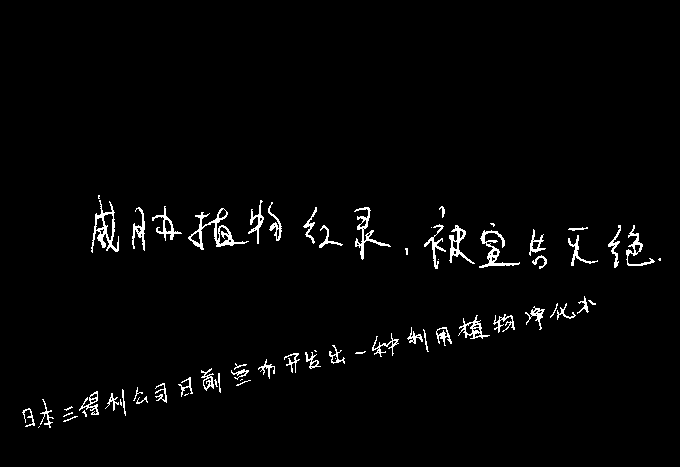 威胁植物红录，被宣告灭绝.
日本三得利公司日前宣布开发出一种利用植物净化水